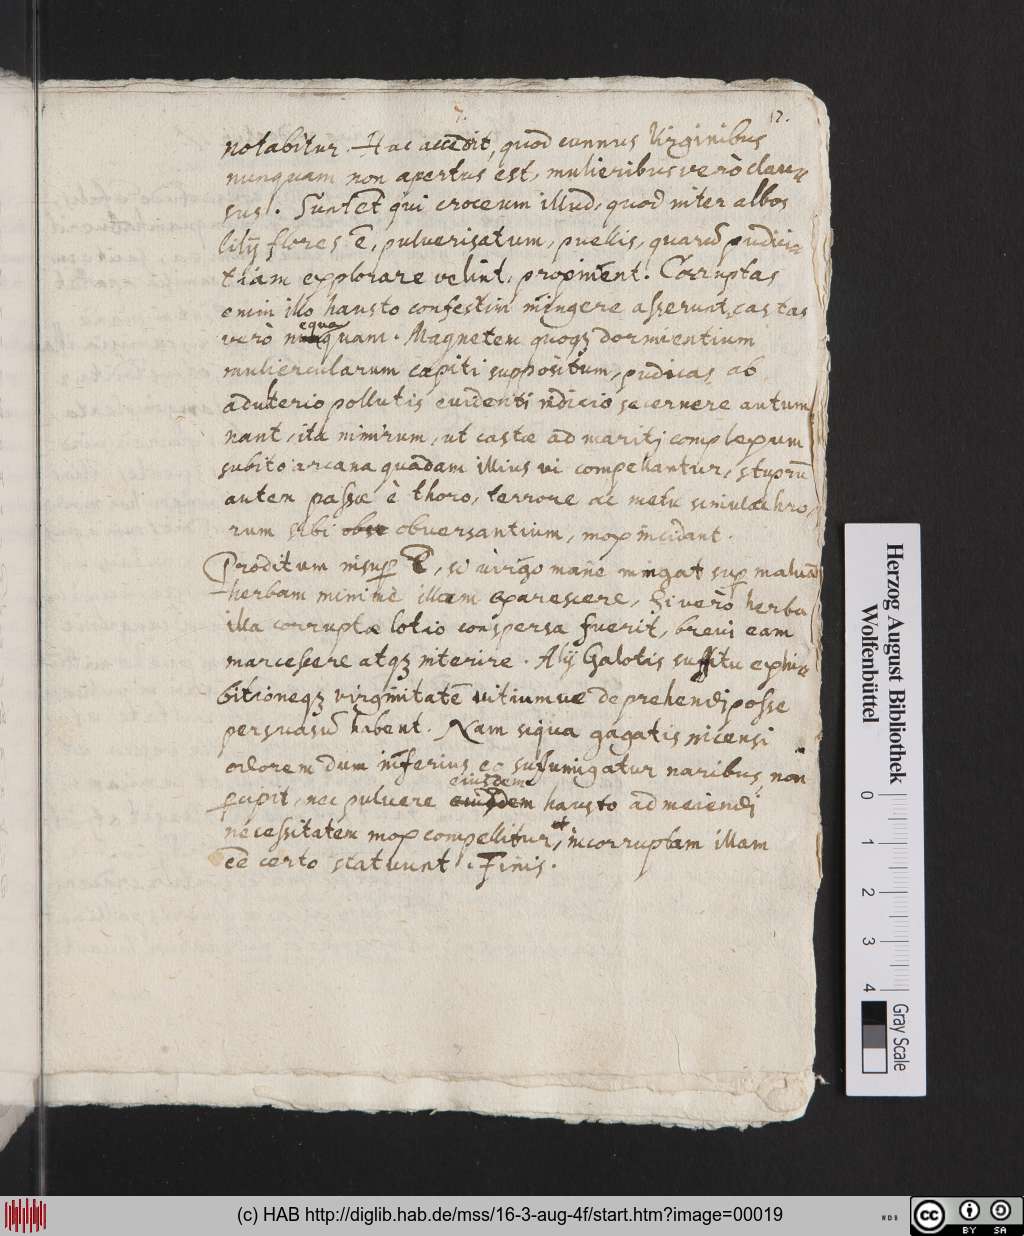 7.
12.
notabitur. Hac accedit, quod cunnus Virginibus
nunquam non apertus est, mulieribus verò clau=
sus. Sunt et qui croceum illud, quod inter albos
lilij flores ē, pulverisatum, puellis, quarū pudici=
tiam explorare velint, propinent. Corruptas
enim illo hausto confestim mingere asserunt, castas
verò nequaquam. Magnetem quoqȝ dormientium
muliercularum capiti suppositum, pudicas ab
adulterio pollutis evidenti indicio secernere autum
nant, ita nimirum, ut castæ ad maritj complexum
subito arcana quadam illius vi compellantur, stuprū
autem passæ è thoro, terrore ac metu simulachro,
rum sibi obversantium, mox incidant.
Proditum insuper ē, si virgo mane mingat super malvā
herbam minime illam exarescere, Si verò herba
illa corruptæ lotio conspersa fuerit, brevi eam
marcescere atqȝ interire. Alij Galotis suffitu exhi=
bitioneqȝ virginitatē vitiumve deprehendi posse
persuasū habent. Nam siqua gagatis incensi
odorem dum inferius eo suffumigatur naribus, non
percipit, nec pulvere eiusdem hausto ad meiendi
necessitatem mox compellitur, et incorruptam illam
eē certo statuunt. Finis.
Herzog August Bibliothek
Wolfenbüttel
0 1 2 3 4
Gray Scale
(c) HAB http://diglib.hab.de/mss/16-3-aug-4f/start.htm?image=00019
WDB
cc BY SA